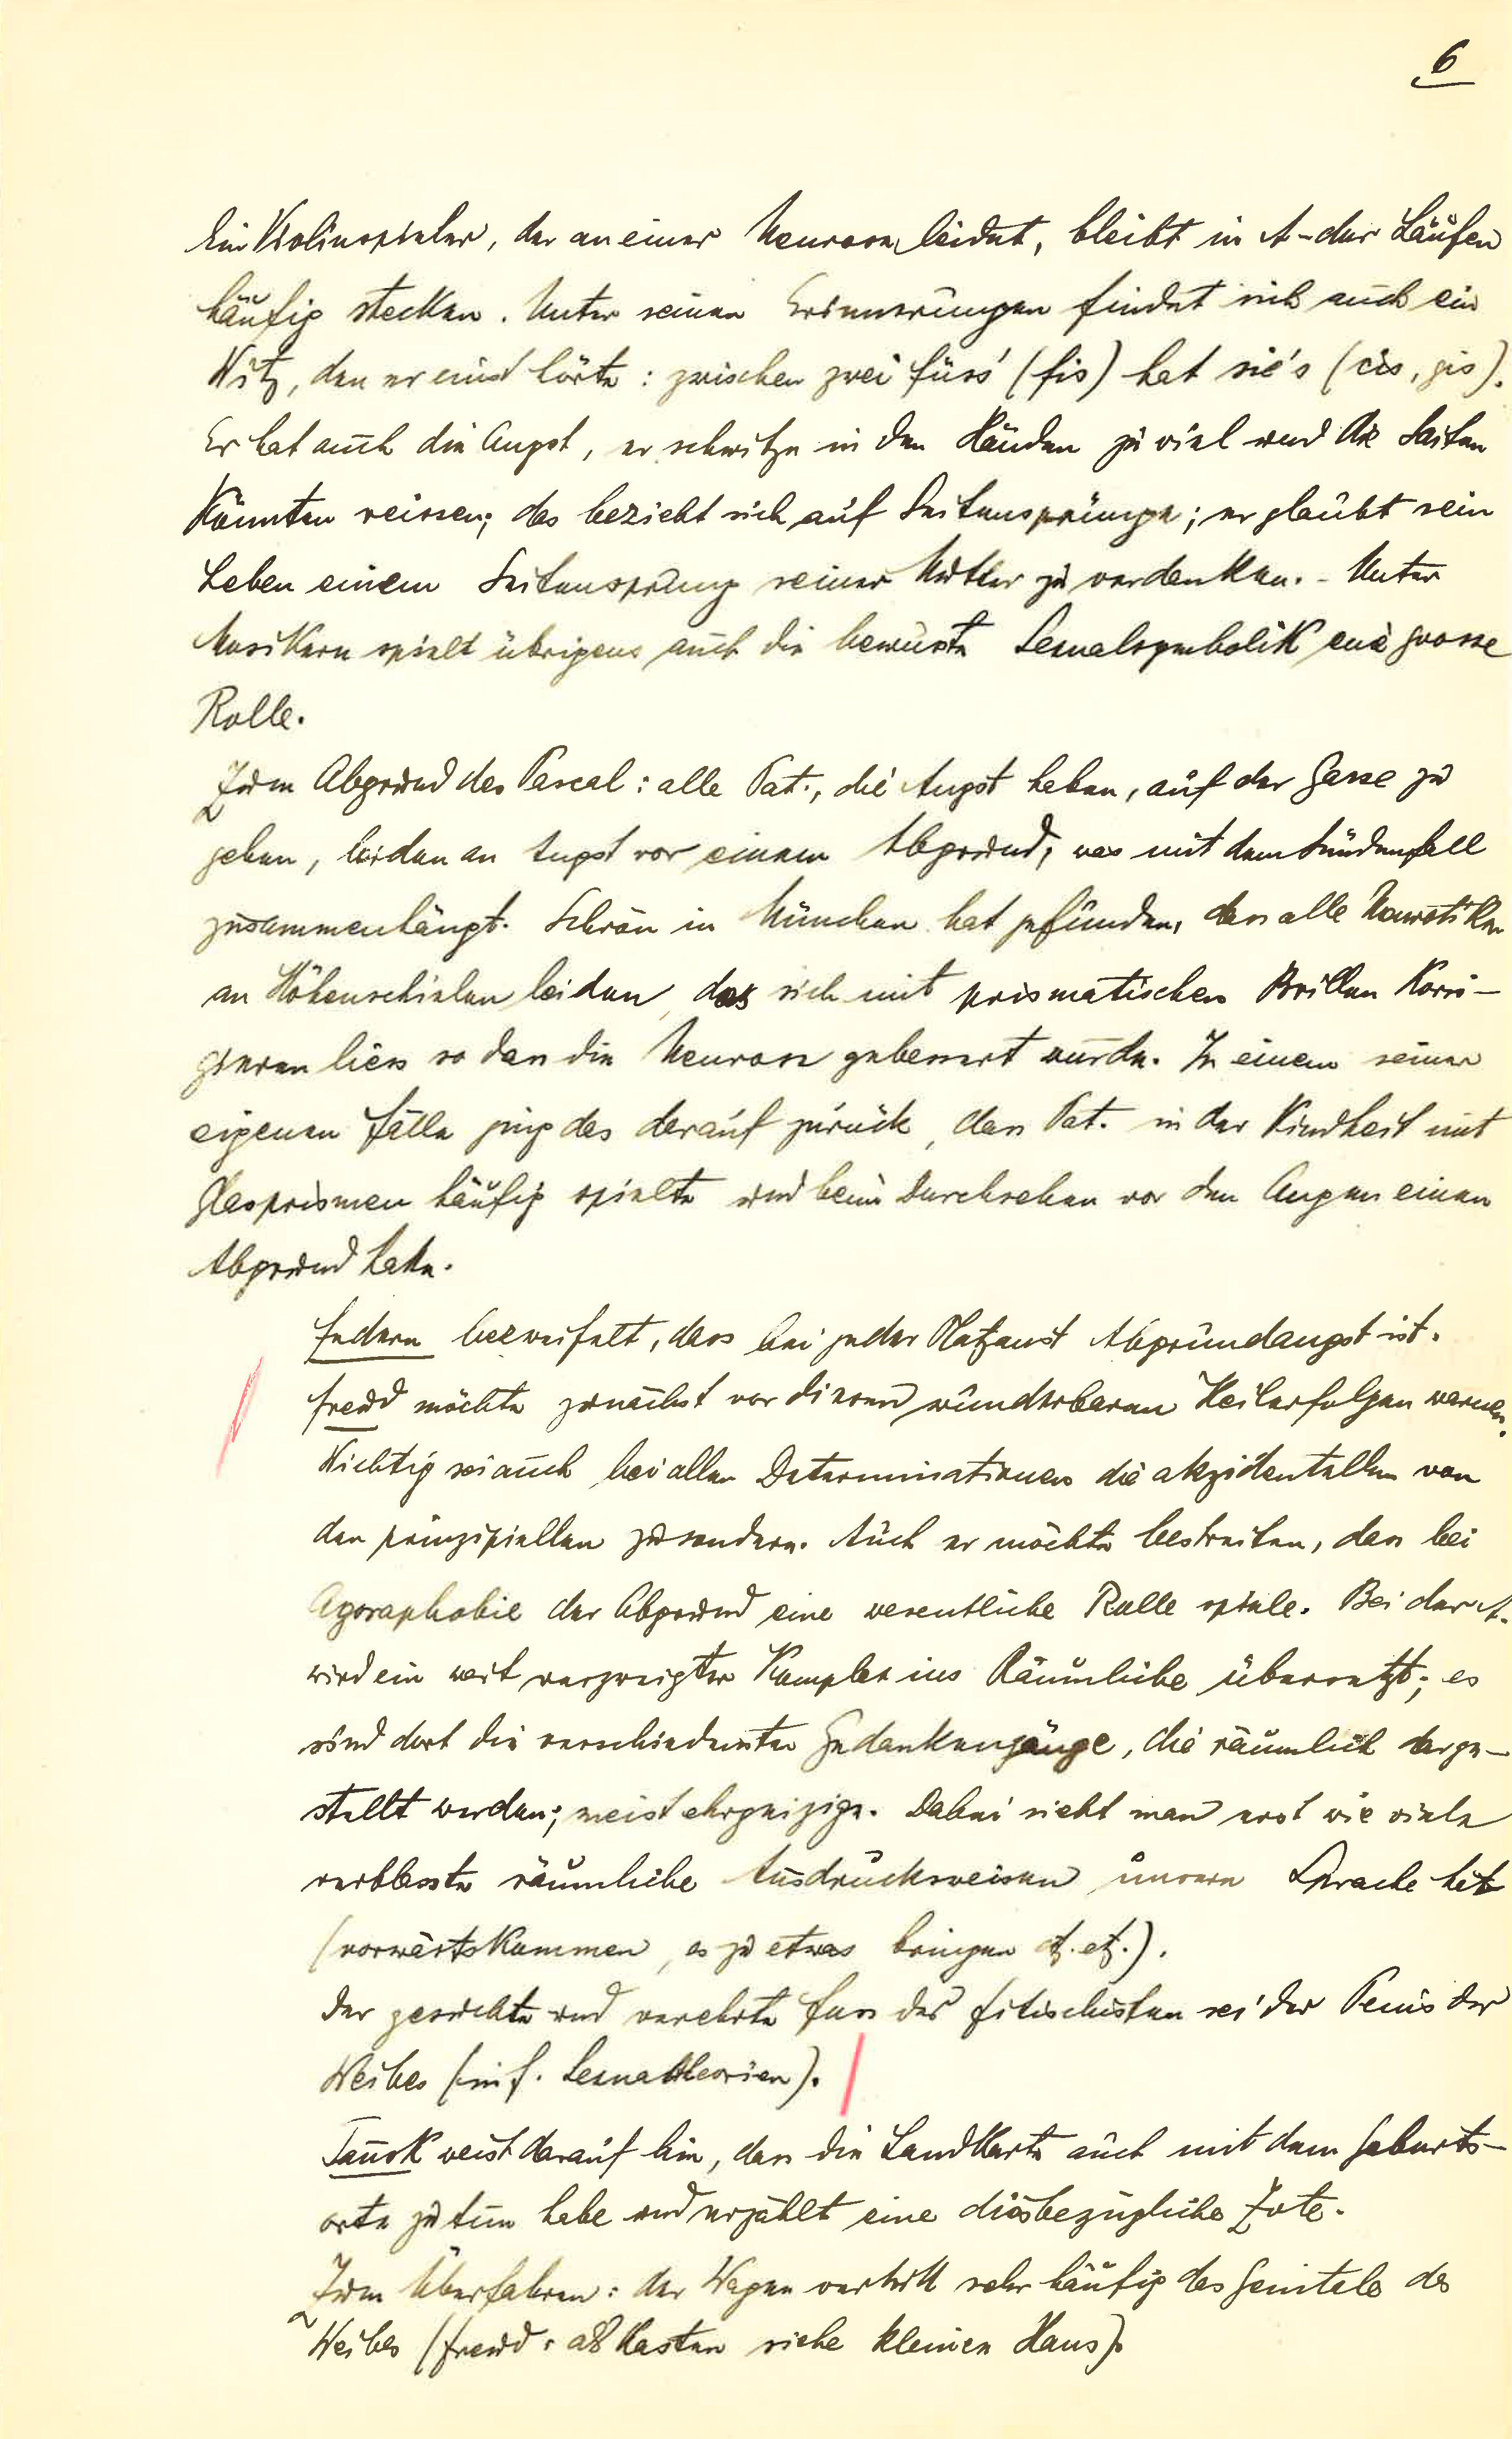 6
Ein Violinspieler, der an einer Neurose leidet, bleibt in A-dur Läufen
häufig stecken. Unter seinen Erinnerungen findet sich auch ein
Witz, den er einst hörte: zwischen zwei füss' (fis) hat sie's (cis, gis).
Er hat auch die Angst, er schwitze in den Händen zu viel und die Saiten
könnten reissen; das bezieht sich auf Seitensprünge; er glaubt sein
Leben einem Seitensprung seiner Mutter zu verdanken. - Unter
Musikern spielt übrigens auch die bewusste Sexualsymbolik eine grosse
Rolle.
Zum Abgrund des Pascal: alle Pat., die Angst haben, auf der Gasse zu
gehen, leiden an Angst vor einem Abgrund, was mit dem Sündenfall
zusammenhängt. Schrön in München hat gefunden, dass alle Neurotiker
an Höhenschielen leiden, das sich mit prismatischen Brillen korri-
gieren liess so dass die Neurose gebessert wurde. In einem seiner
eigenen Fälle ging das darauf zurück, dass Pat. in der Kindheit mit
Glasprismen häufig spielte und beim Durchsehen vor den Augen einen
Abgrund hatte.
Federn bezweifelt, dass bei jeder Platzanst Abgrundangst ist.
Freud möchte zunächst vor diesen wunderbaren Heilerfolgen warnen.
Wichtig sei auch bei allen Determinationen die akzidentellen von
den prinzipiellen zu sondern. Auch er möchte bestreiten, dass bei
Agoraphobie der Abgrund eine wesentliche Rolle spiele. Bei der A.
wird ein weit verzweigter Komplex ins Räumliche übersetzt; es
sind dort die verschiedensten Gedankengänge, die räumlich darge-
stellt werden; meist ehrgeizige. Dabei sieht man erst wie viele
verblasste räumliche Ausdrucksweisen unsere Sprache hat
(vorwärtskommen, es zu etwas bringen etz. etz.).
Der gesuchte und verehrte Fuss des Fetischisten sei der Penis des
Weibes (inf. Sexualtheorien).
Tausk weist darauf hin, dass die Landkarte auch mit dem Geburts-
orte zu tun habe und erzählt eine diesbezügliche Zote.
Zum Überfahren: der Wagen vertritt sehr häufig das Genitale des
Weibes (Freud: als Kasten siehe kleinen Hans).